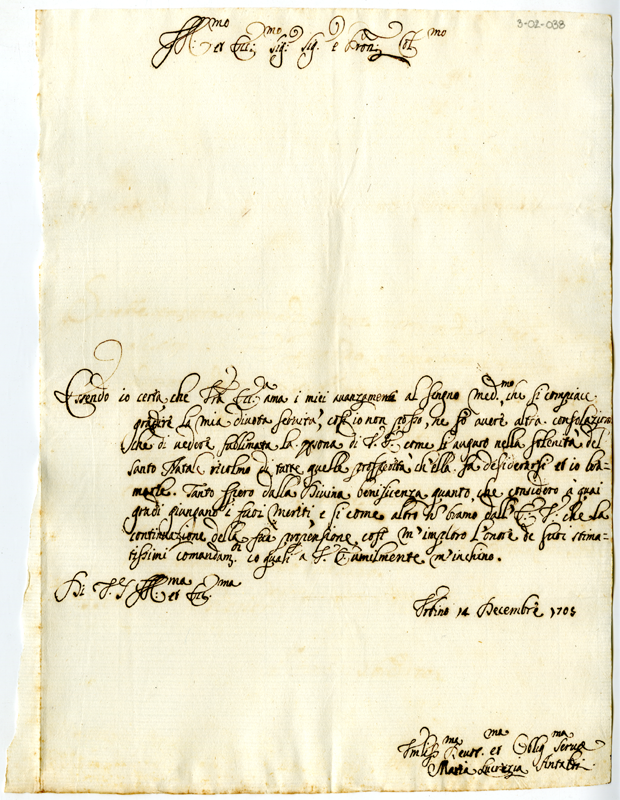 3-02-038
Ill:mo et Ecc:mo Sig:r Sig:r e Pron: Col:mo
Essendo io certa che Vra Ecc:za ama i miei auanzamenti al segno Med:mo, che si compiace
gradire la mia diuota seruitù, così io non posso, ne sò auere altra consolazione
che di uedere sublimata la psona di V. E. come le auguro nella solenità del
santo Natale ricolmo di tutte quelle prosperità ch'ella sà desiderarsi et io bra=
marle. Tanto spero dalla Diuina beneficenza quanto, che considero à quai
gradi giungano i suoi meriti e si come altro ñ bramo dall'E. V. che la
continuazione della sua propensione, così m'imploro l'onore de suoi stima=
tissimi comandam:ti co quali a V. E. umilmente m'inchino.
Di V. E. Ill:ma et Ecc:ma
Vrbino 14 Decembre 1703
Vmiliss:ma Deuot:ma et Oblig:ma Serua
Maria Lucrezia Antaldi